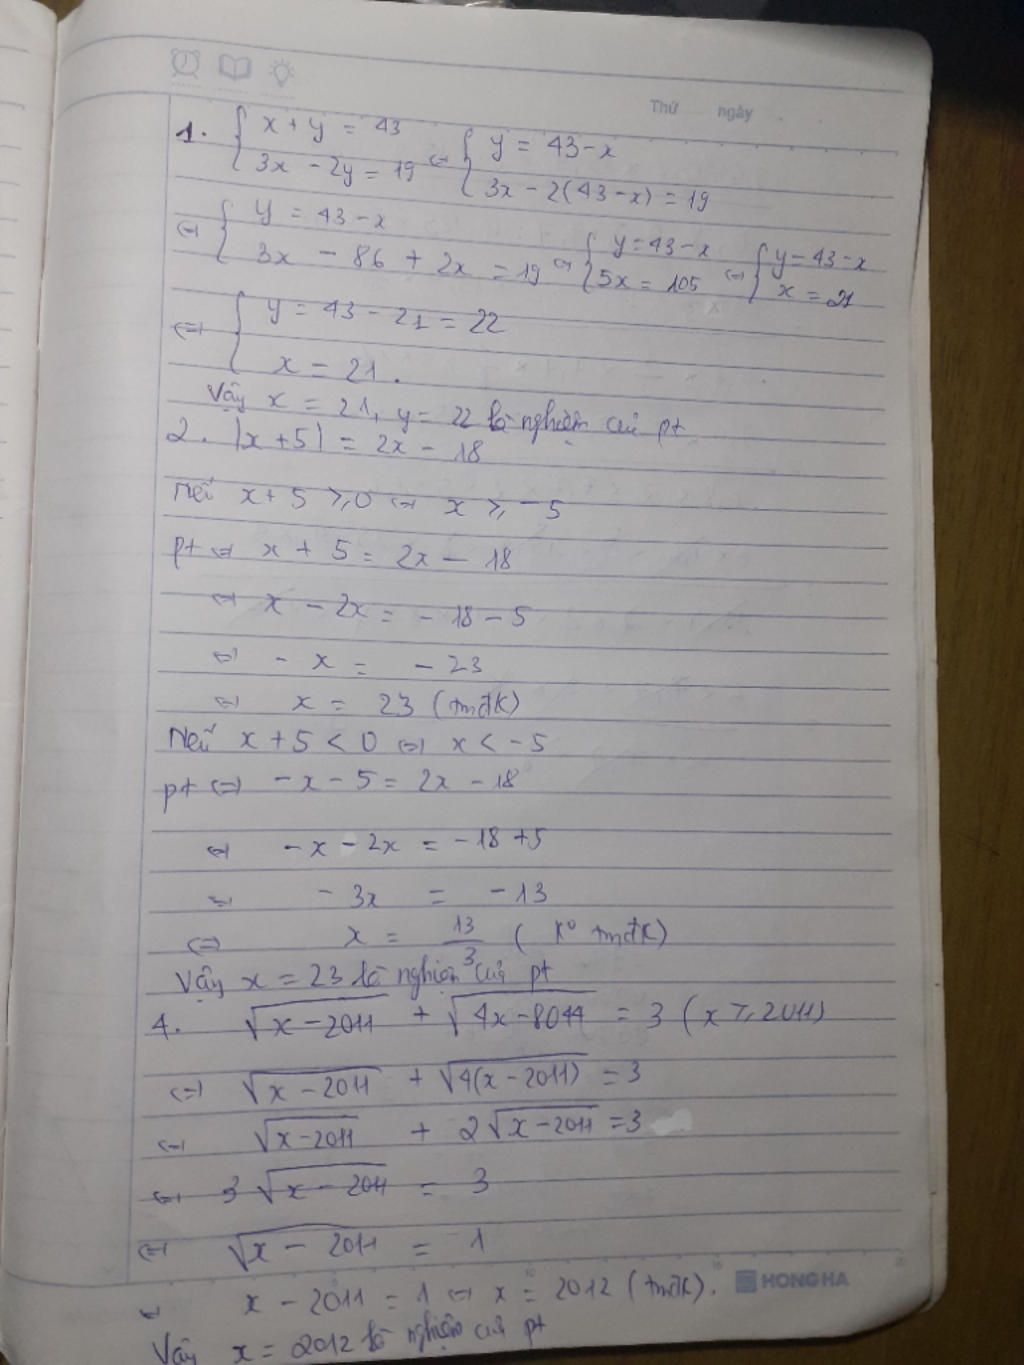 Thứ ngày
1. { x + y = 43 ⇔ { y = 43 - x
3x - 2y = 19 3x - 2(43 - x) = 19
⇔ { y = 43 - x ⇔ { y = 43 - x ⇔ { y = 43 - x
3x - 86 + 2x = 19 5x = 105 x = 21
⇔ { y = 43 - 21 = 22
x = 21.
Vậy x = 21, y = 22 là nghiệm của pt
2. |x + 5| = 2x - 18
Nếu x + 5 ≥ 0 ⇔ x ≥ -5
pt ⇔ x + 5 = 2x - 18
⇔ x - 2x = - 18 - 5
⇔ - x = - 23
⇔ x = 23 (tmđk)
Nếu x + 5 < 0 ⇔ x < -5
pt ⇔ - x - 5 = 2x - 18
⇔ - x - 2x = - 18 + 5
⇔ - 3x = - 13
⇔ x = 13/3 ( k° tmđk)
Vậy x = 23 là nghiệm của pt
4. √(x - 2011) + √(4x - 8044) = 3 ( x ≥ 2011)
⇔ √(x - 2011) + √(4(x - 2011)) = 3
⇔ √(x - 2011) + 2√(x - 2011) = 3
⇔ 3√(x - 2011) = 3
⇔ √(x - 2011) = 1
⇔ x - 2011 = 1 ⇔ x = 2012 (tmđk).
HONG HA
Vậy x = 2012 là nghiệm của pt